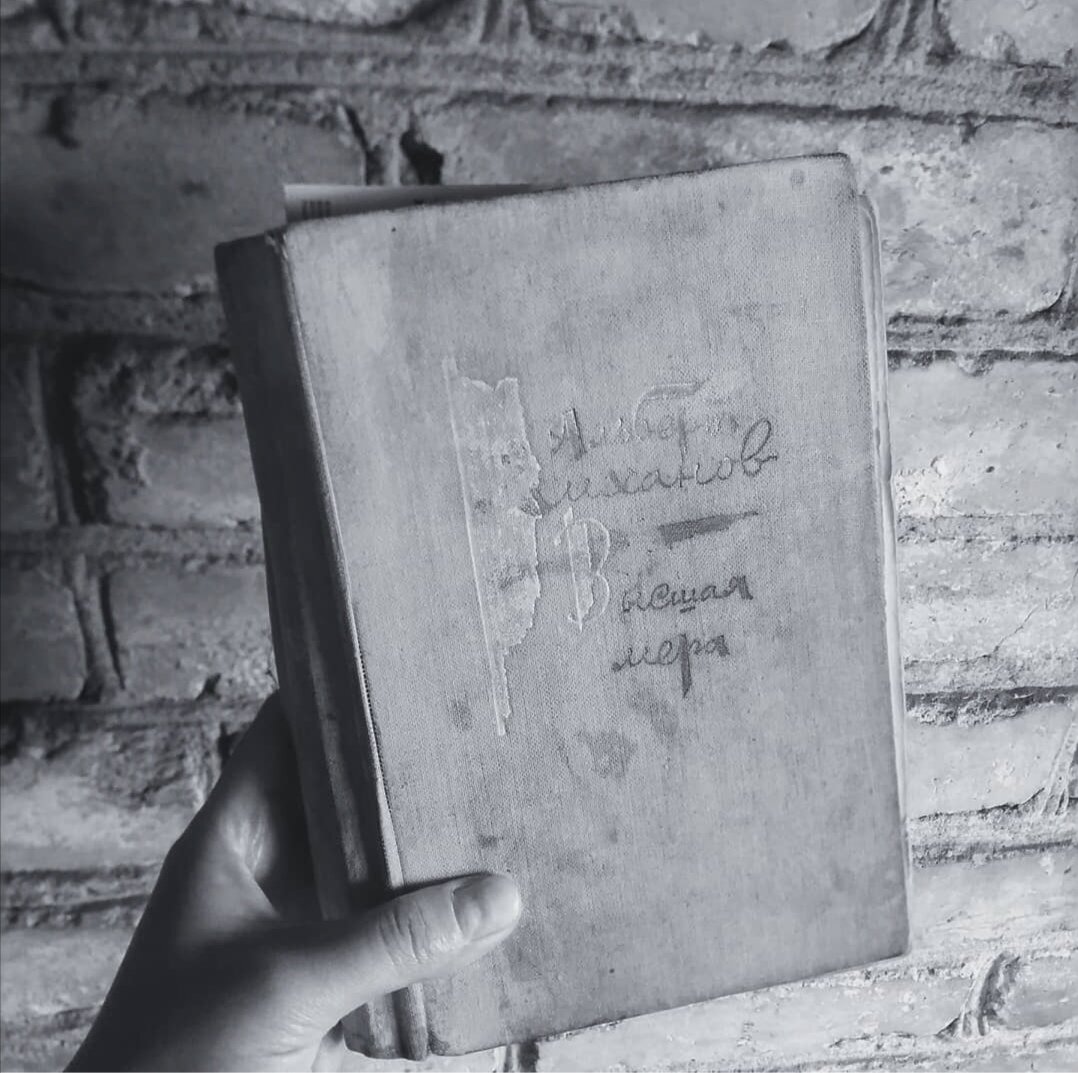 Альберт
Лиханов
Высшая
мера